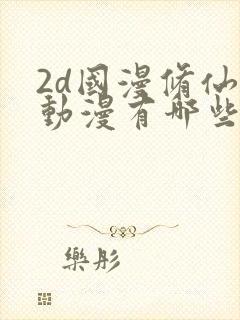 2d國漫脩仙
動漫有哪些
樂彤